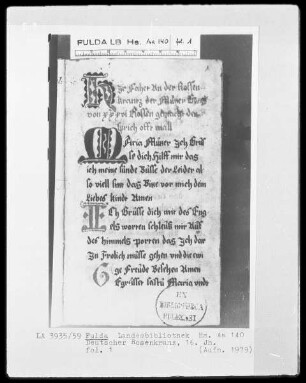 FULDA LB Hs. Aa 140 fol. 1
Hye facher An der Rossen
krantz der Muter Gots
von Rossen gepracht den
sprich offt mall
Maria Muter Ich Grü
se dich Hilff mir das
ich meine sünde Büsse der Leider al
so viell sint das Dine vor mich dem
Liebes kinde Amen
Ich Grüsse dich mit des Eng
els worten schleiß mir Auff
des himmels porten das Ich dar
In Frolich müsse gehen vnd die ewi
ge Freude Beschen Amen
Egrüsset sastu Maria vnde
EX
LA 3935/59 Fulda Landesbibliothek Hs. Aa 140
Deutscher Rosenkranz, 16. Jh.
fol. 1 (Aufn. 1975)